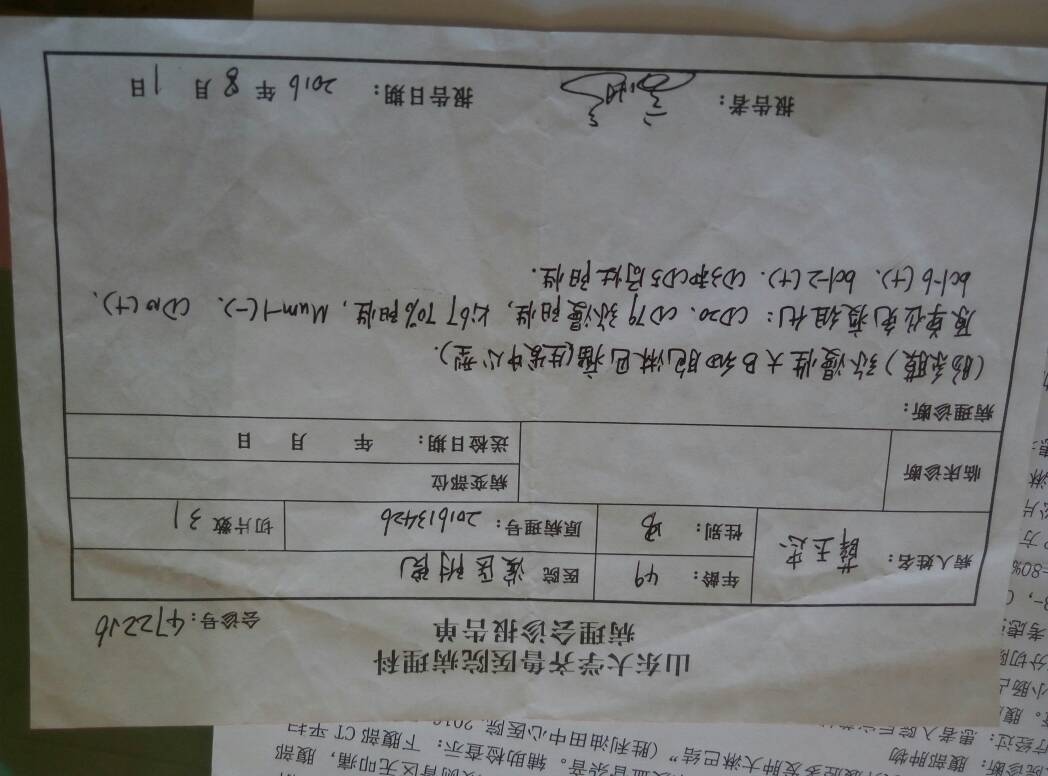 山东大学齐鲁医院病理科
病理会诊报告单
会诊号：472216
病人姓名： 薛玉忠 年龄： 49 医院 滨医附院
性别： 男 原病理号： 201613426 切片数 31
临床诊断 病变部位
送检日期： 年 月 日
病理诊断：
(肠系膜) 弥漫性大B细胞淋巴瘤(生发中心型).
原单位免疫组化： CD20、CD79弥漫阳性, ki67 70%阳性, Mum-1(-)、CD10(+)、
bcl-6(+)、bcl-2(+)、CD3和CD5局灶阳性.
报告者： 报告日期： 2016 年 8 月 1 日
诊断： 腹部肿物
疗经过： 患者入院后
下腹部 CT 平扫